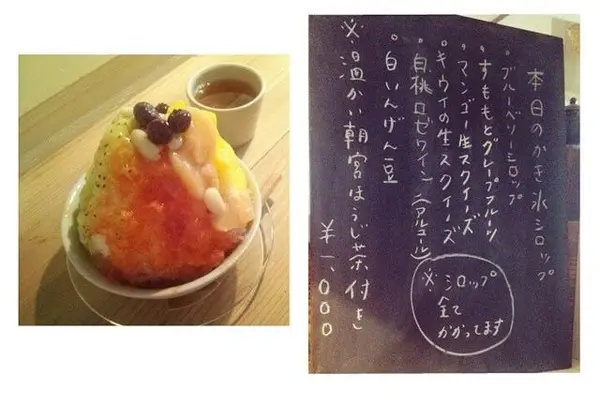 本日のかき氷シロップ
。ブルーベリーシロップ
。すももとグレープフルーツ
。マンゴー生スクイーズ
。キウイの生スクイーズ
。白桃ロゼワイン(アルコール)
。白いんげん豆
※温かい朝宮ほうじ茶付き
¥1,000
※シロップ
全て
かかってます